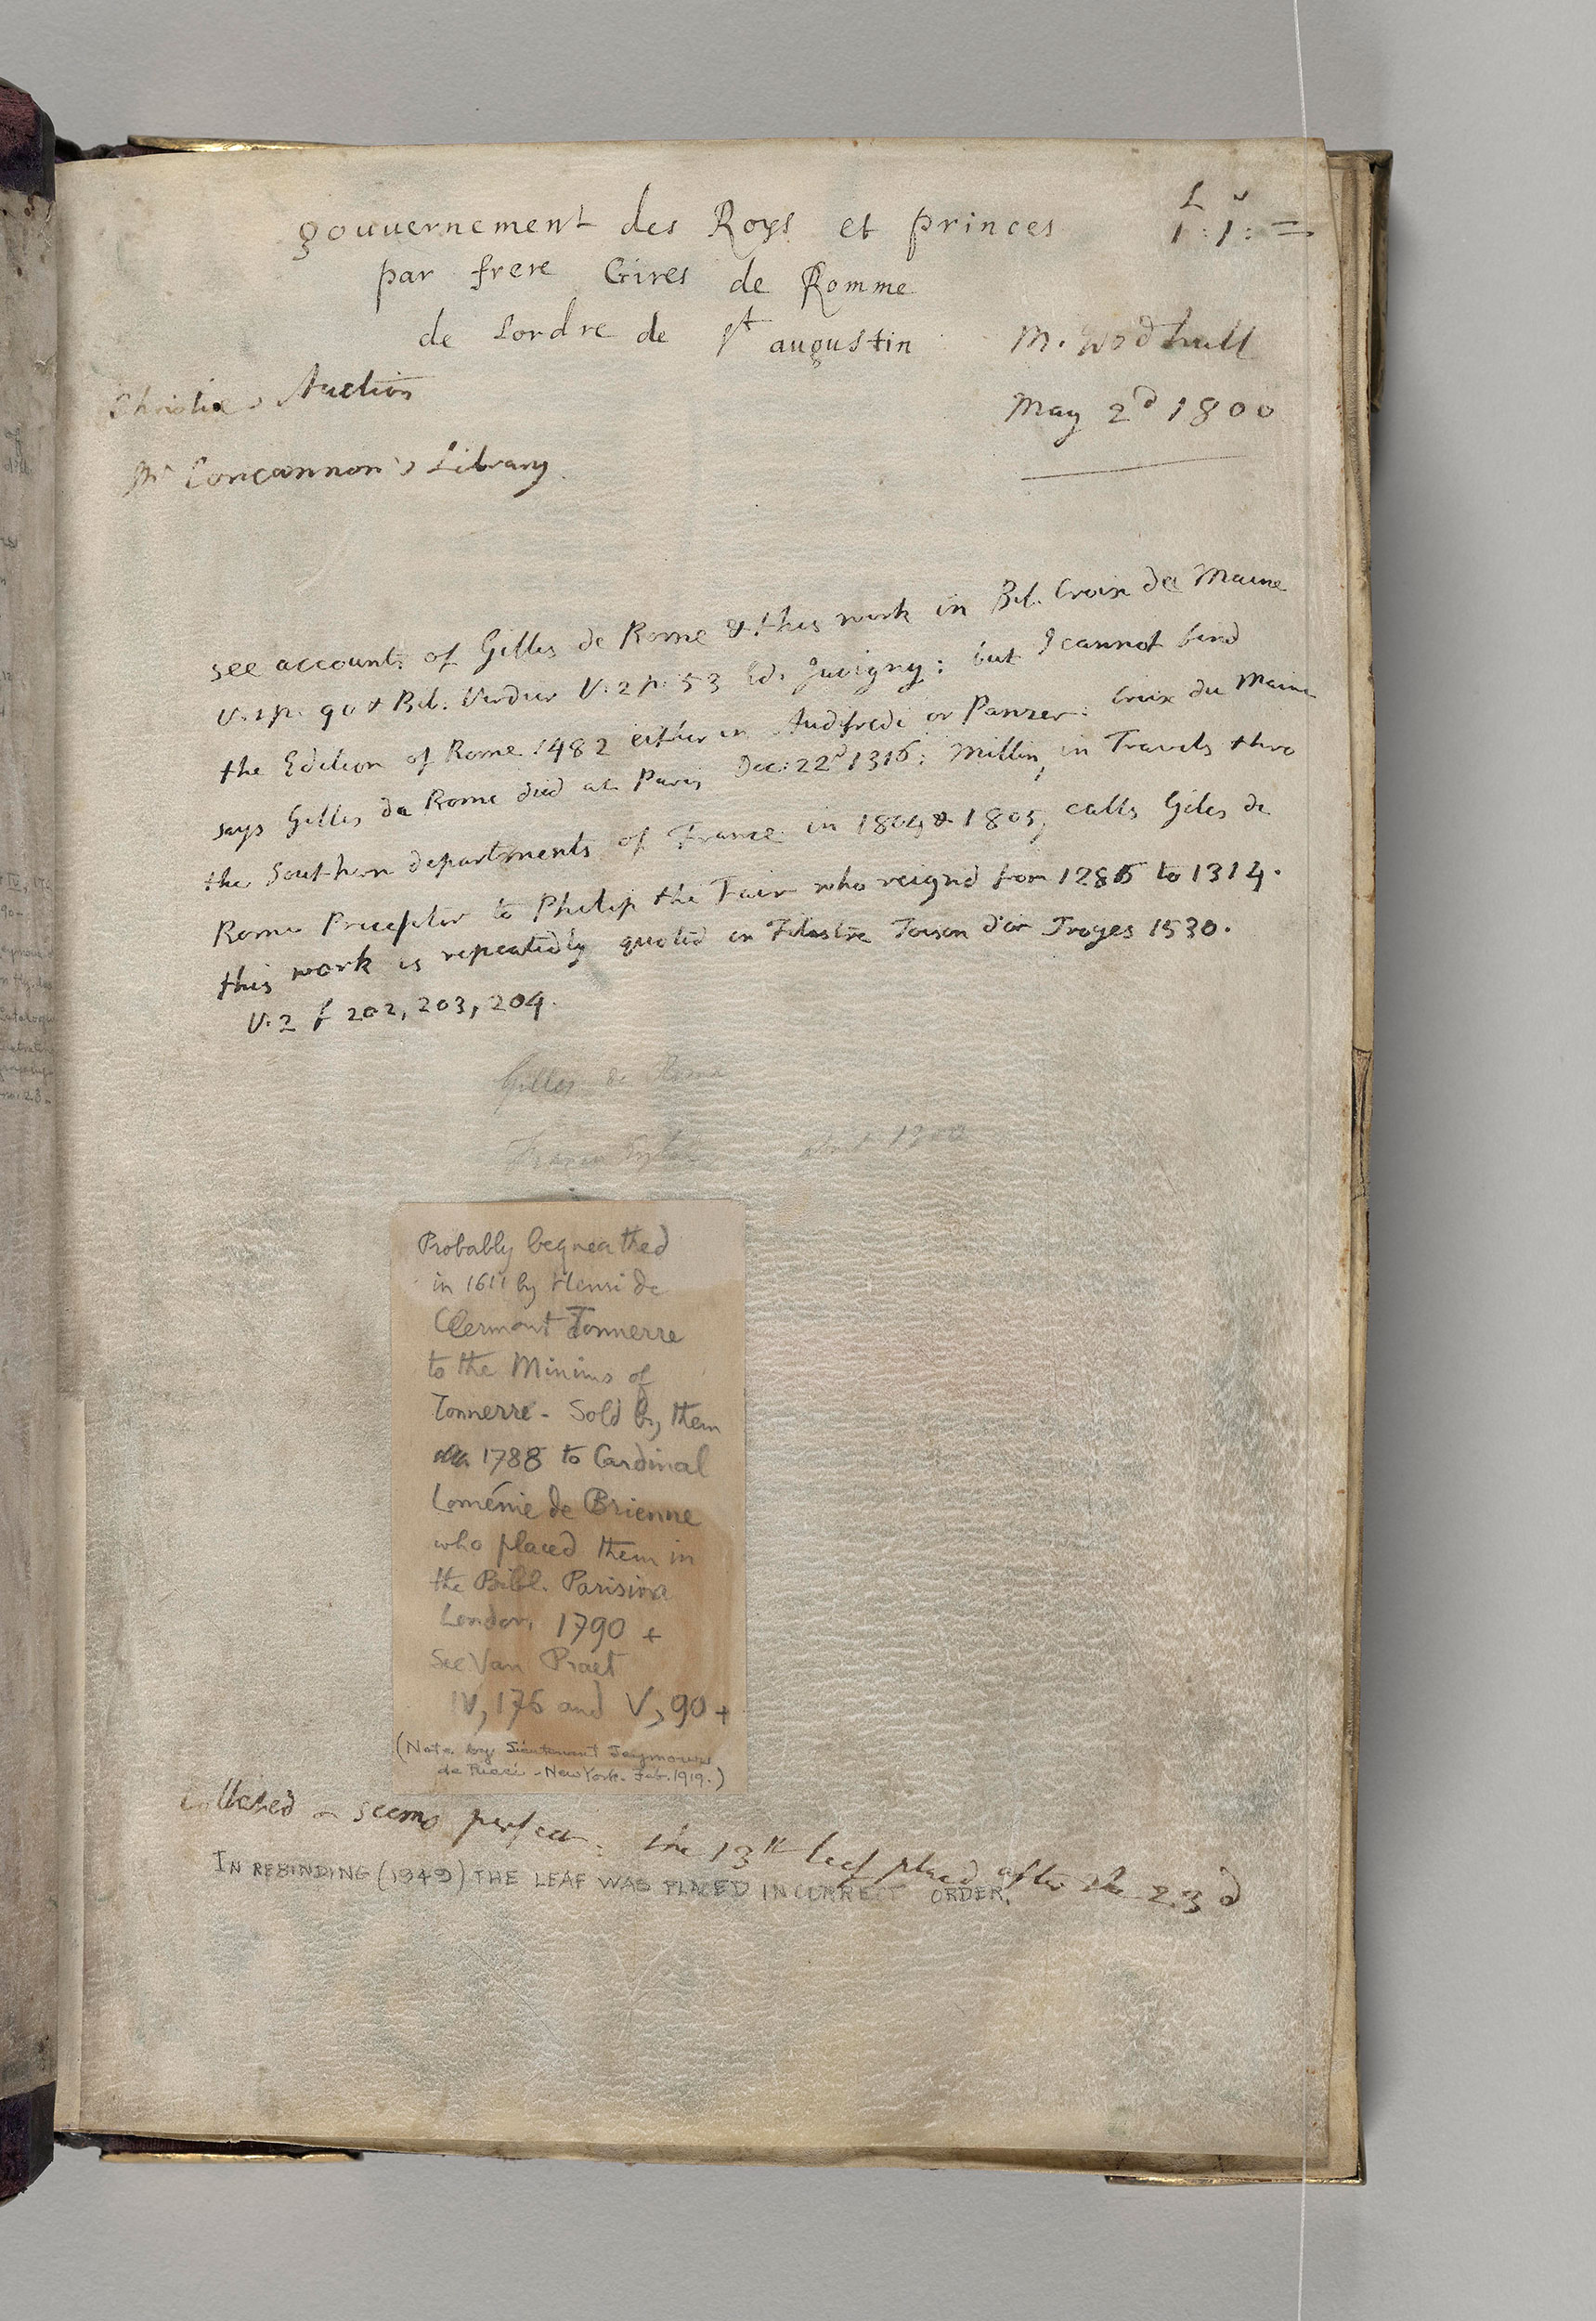 gouvernement des Roys et princes
par frere Gires de Romme
de Lordre de St augustin
£ s
1 : 1 : =
M. Wodhull
May 2d 1800
Christie's Auction
Mr Concannon's Library.
see account of Gilles de Rome & this work in Bib. Croix du Maine
V. 1 p. 90 & Bib. Verdier V. 2 p. 53 Ed. Juvigny: but I cannot find
the Edition of Rome 1482 either in Audifredi or Panzer: Croix du Maine
says Gilles de Rome died at Paris Dec: 22d 1316: Millin, in Travels thro
the Southern departments of France in 1804 & 1805, calls Giles de
Rome Preceptor to Philip the Fair who reignd from 1286 to 1314.
this work is repeatedly quoted in Filastre Toison d'or Troyes 1530.
V. 2 f 202, 203, 204.
Gilles de Rome
1300
Probably bequeathed
in 1611 by Henri de
Clermont Tonnerre
to the Minims of
Tonnerre - Sold by them
1788 to Cardinal
Loménie de Brienne
who placed them in
the Bibl. Parisina
London, 1790 +
See Van Praet
IV, 175 and V, 90 +
(Note by Lieutenant Seymour
de Ricci - New York. Feb. 1919.)
Collated & seems perfect: the 13th leaf placed after the 23d
IN REBINDING (1949) THE LEAF WAS PLACED IN CORRECT ORDER.